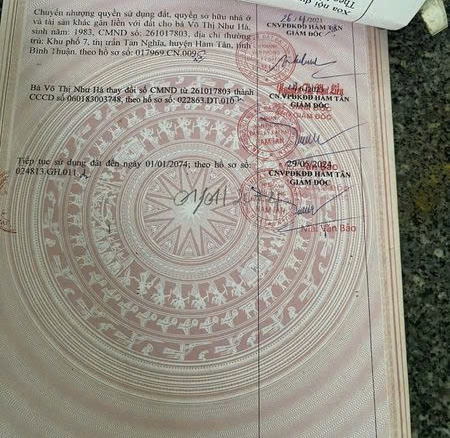 Chuyển nhượng quyền sử dụng đất, quyền sở hữu nhà ở
và tài sản khác gắn liền với đất cho bà Võ Thị Như Hà,
sinh năm: 1983, CMND số: 261017803, địa chỉ thường
trú: Khu phố 7, thị trấn Tân Nghĩa, huyện Hàm Tân, tỉnh
Bình Thuận, theo hồ sơ số: 017969.CN.009
26/4/2021
CNVPĐKĐĐ HÀM TÂN
GIÁM ĐỐC
Bà Võ Thị Như Hà thay đổi số CMND từ 261017803 thành
CCCD số 060183003748, theo hồ sơ số: 022863.DT.010
CN.VPĐKĐĐ HÀM TÂN
GIÁM ĐỐC
Tiếp tục sử dụng đất đến ngày 01/01/2074; theo hồ sơ số:
024813.GH.011
29/05/2024
CNVPĐKĐĐ HÀM TÂN
GIÁM ĐỐC
Mai Văn Bảo